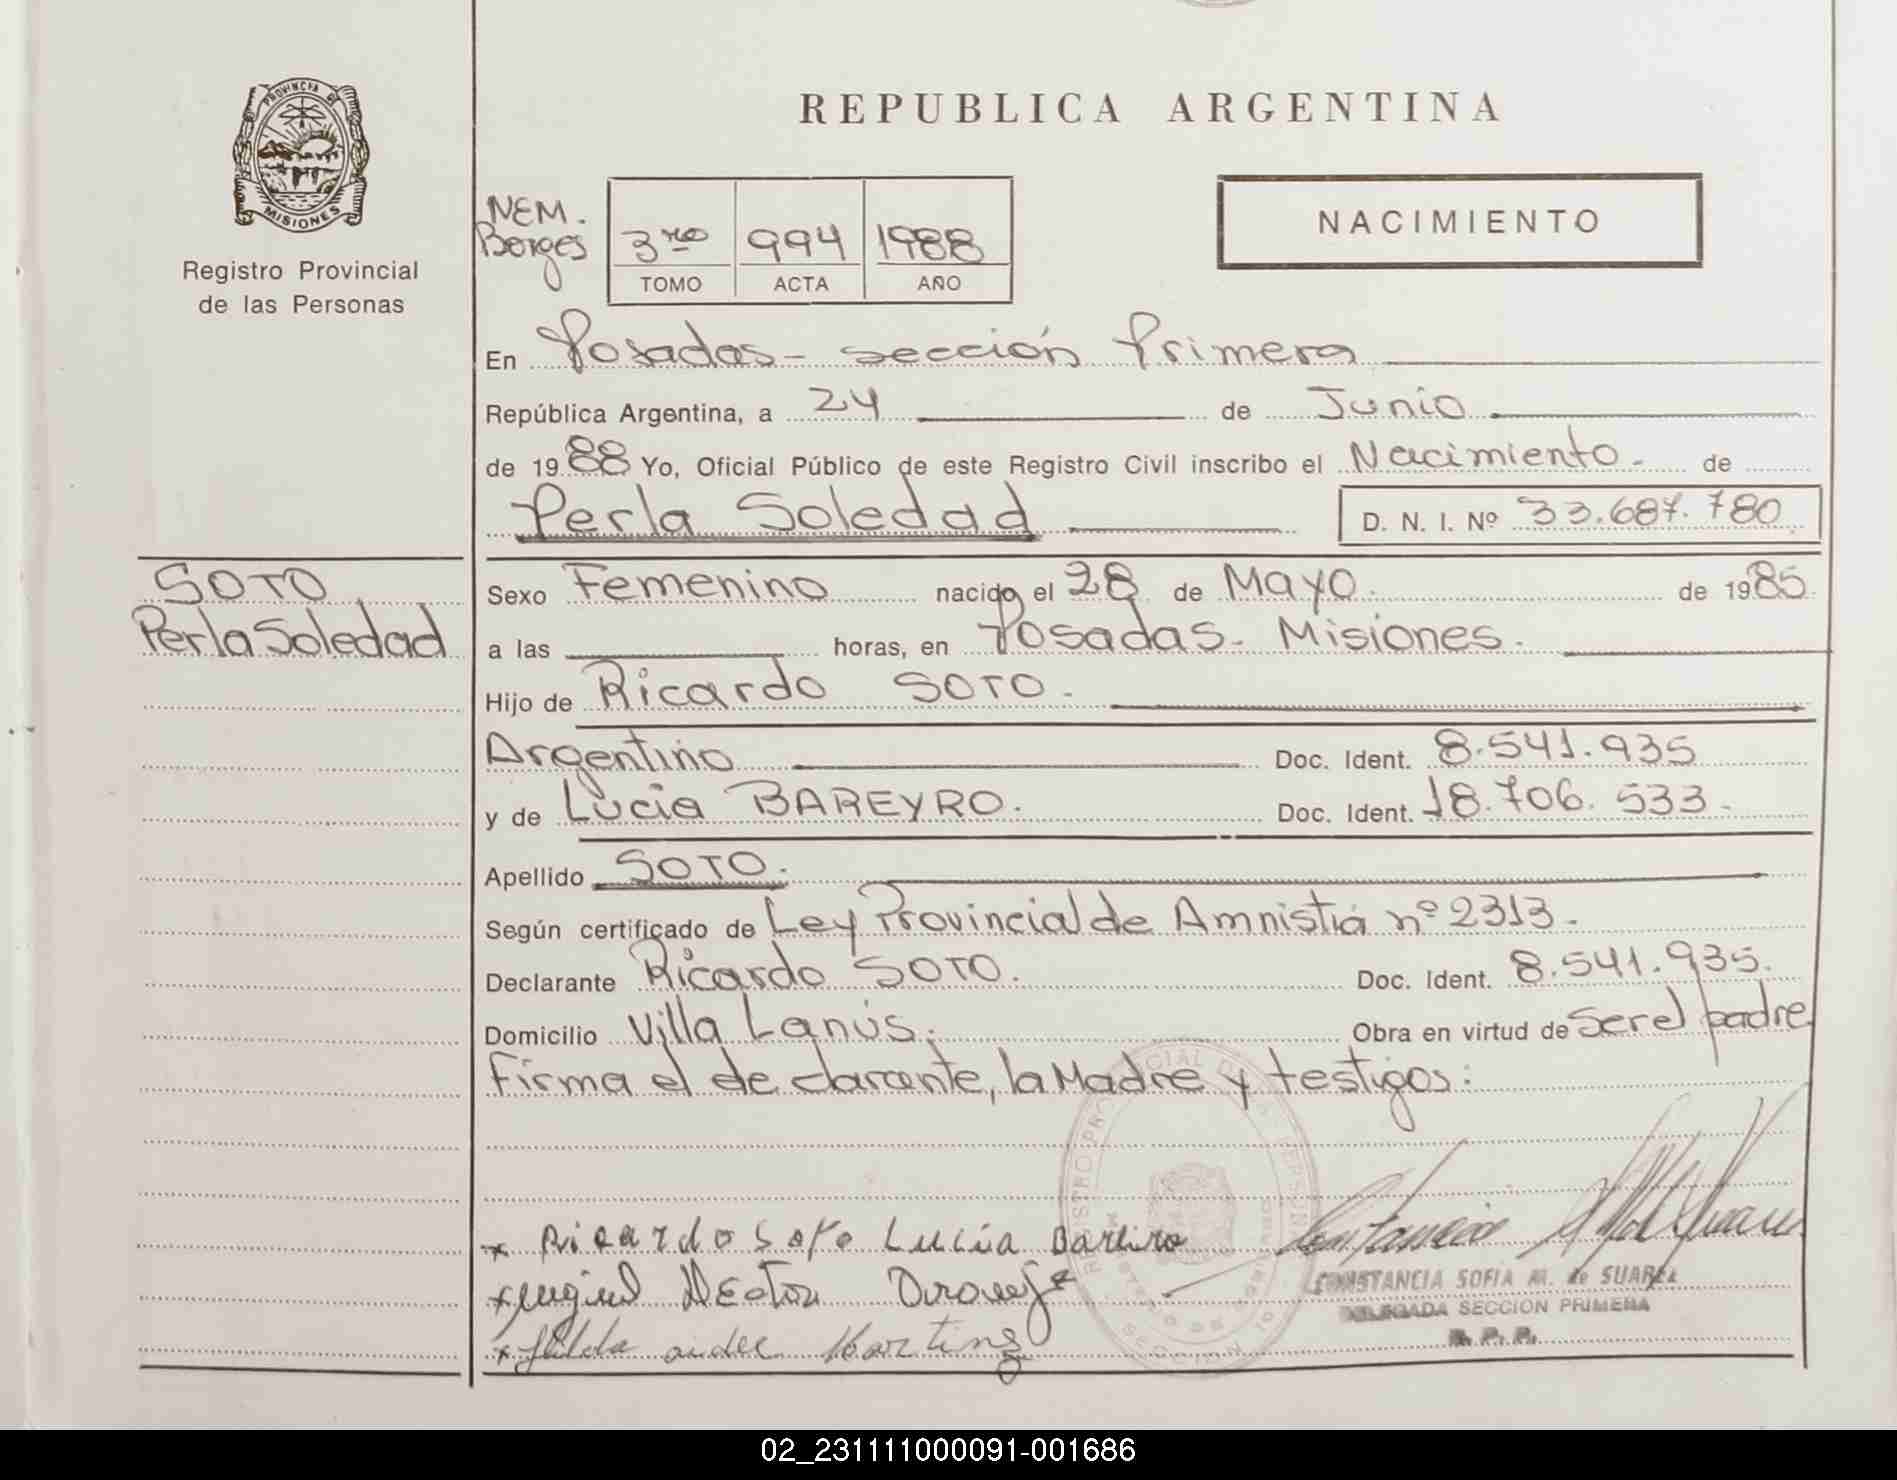 PROVINCIA DE
MISIONES
Registro Provincial
de las Personas
REPUBLICA ARGENTINA
NEM.
Borges
3ro 994 1988
TOMO ACTA AÑO
NACIMIENTO
En Posadas - sección Primera
República Argentina, a 24 de Junio
de 1988 Yo, Oficial Público de este Registro Civil inscribo el Nacimiento. de
Perla Soledad D. N. I. Nº 33.687.780
SOTO
Perla Soledad
Sexo Femenino nacido el 28 de Mayo. de 1985.
a las horas, en Posadas - Misiones.
Hijo de Ricardo SOTO.
Argentino Doc. Ident. 8.541.935
y de Lucia BAREYRO. Doc. Ident. 18.706.533.
Apellido SOTO.
Según certificado de Ley Provincial de Amnistia nº 2313.
Declarante Ricardo SOTO. Doc. Ident. 8.541.935.
Domicilio Villa Lanús. Obra en virtud de Ser el padre
Firma el declarante, la Madre y testigos:
x Ricardo Soto Lucía Bareiro
Hector
Martinez
CONSTANCIA SOFIA M. de SUAREZ
DELEGADA SECCION PRIMERA
R. P. P.
02_231111000091-001686